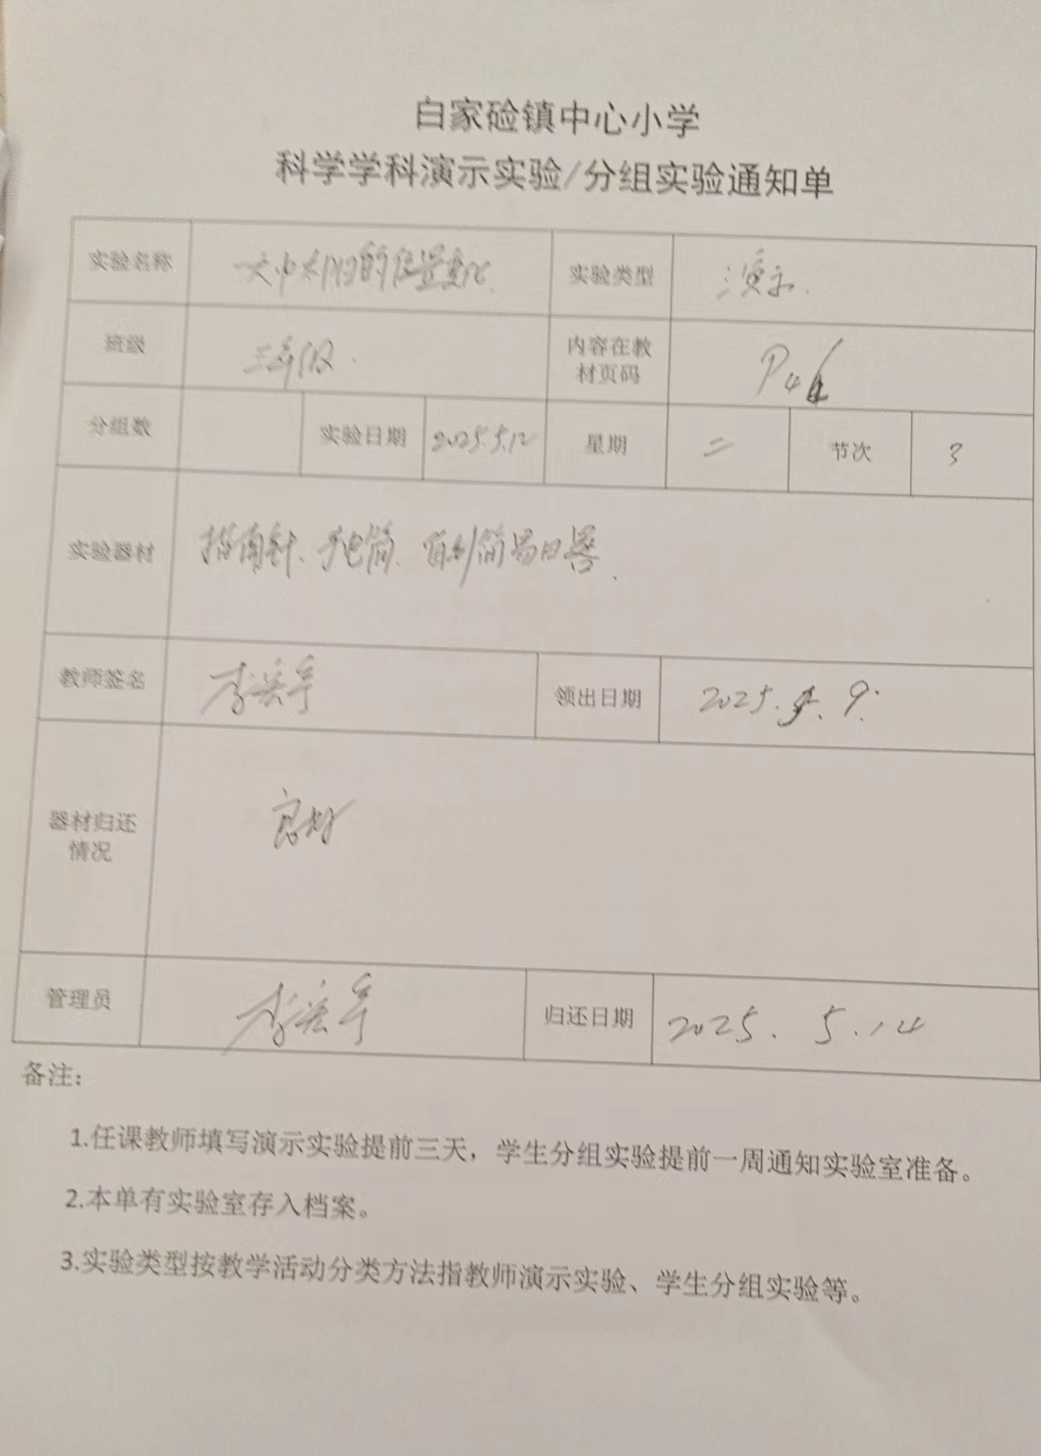 白家硷镇中心小学
科学学科演示实验/分组实验通知单
实验名称 一天中太阳的位置变化 实验类型 演示.
班级 三年级. 内容在教材页码 P46
分组数 实验日期 2025.5.12 星期 二 节次 3
实验器材 指南针、手电筒、自制简易日晷、
教师签名 领出日期 2025.5.9.
器材归还情况 良好
管理员 归还日期 2025.5.14
备注：
1.任课教师填写演示实验提前三天，学生分组实验提前一周通知实验室准备。
2.本单有实验室存入档案。
3.实验类型按教学活动分类方法指教师演示实验、学生分组实验等。